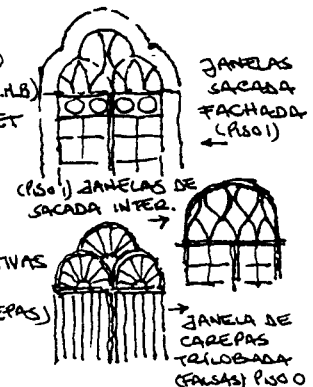 JANELAS
SACADA
FACHADA
(PISO 1)
(PISO 1) JANELAS DE
SACADA INTER.
JANELA DE
CAREPAS
TRILOBADA
(FALSAS) PISO 0